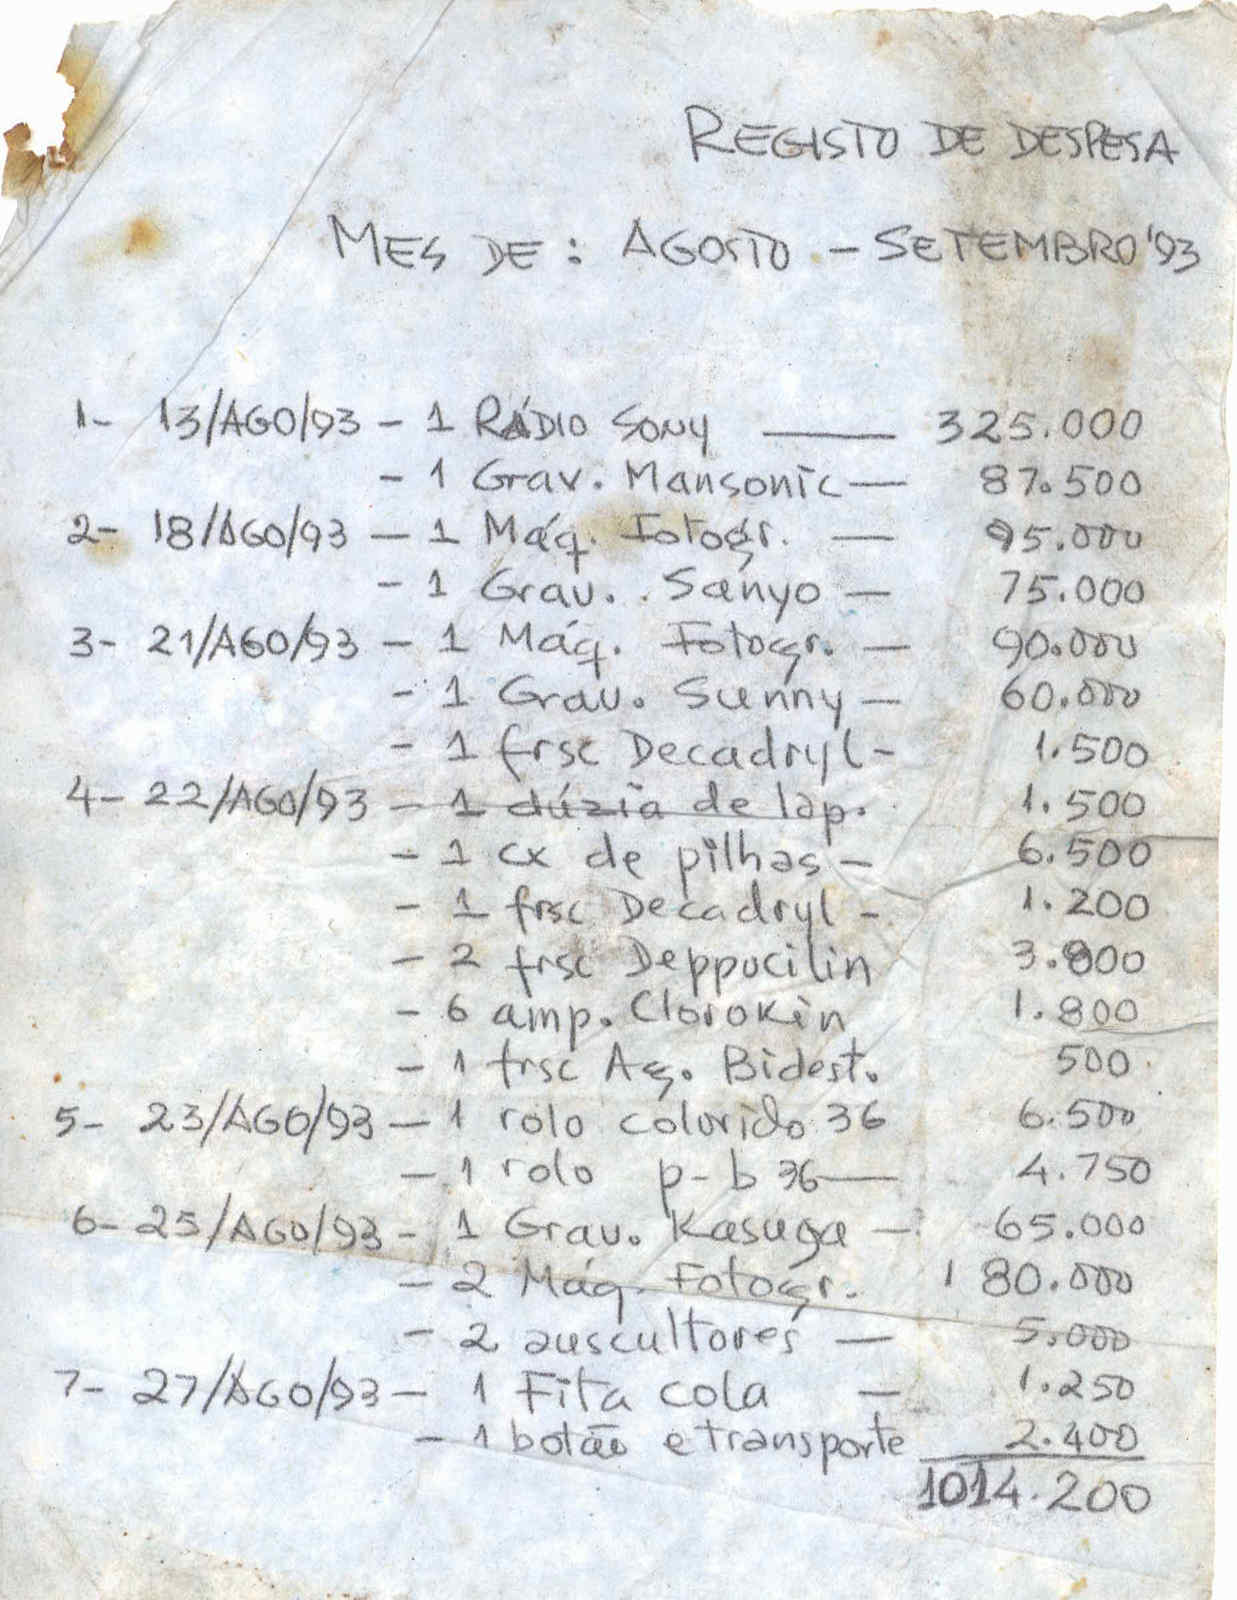 REGISTO DE DESPESA
MES DE: AGOSTO - SETEMBRO '93
1- 13/AGO/93 - 1 RÁDIO SONY — 325.000
- 1 Grav. Mansonic — 87.500
2- 18/AGO/93 - 1 Máq. Fotogr. — 95.000
- 1 Grav. Sanyo — 75.000
3- 21/AGO/93 - 1 Máq. Fotogr. — 90.000
- 1 Grav. Sunny — 60.000
- 1 frsc Decadryl - 1.500
4- 22/AGO/93 - 1 dúzia de lap. 1.500
- 1 cx de pilhas - 6.500
- 1 frsc Decadryl - 1.200
- 2 frsc Deppucilin 3.800
- 6 amp. Clorokin 1.800
- 1 frsc Ag. Bidest. 500
5- 23/AGO/93 - 1 rolo colorido 36 6.500
- 1 rolo p-b 36 — 4.750
6- 25/AGO/93 - 1 Grav. Kasuga — 65.000
- 2 Máq. Fotogr. 180.000
- 2 auscultores — 5.000
7- 27/AGO/93 - 1 Fita cola — 1.250
- 1 botão e transporte 2.400
1014.200